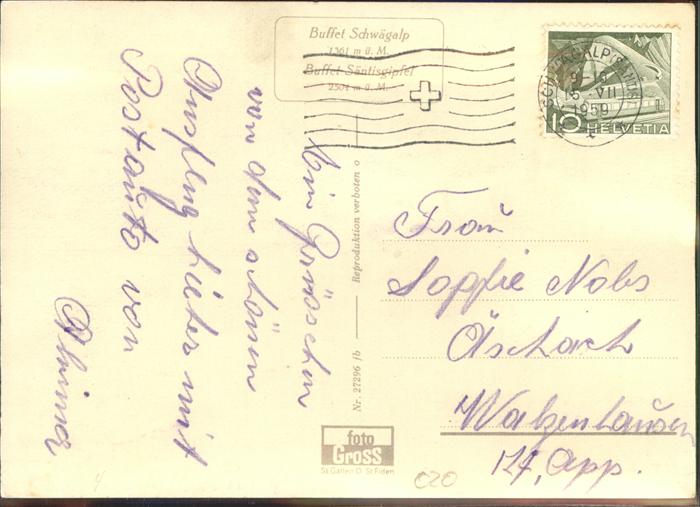 Buffet Schwägalp
1361 m ü. M.
Buffet Säntisgipfel
2504 m ü. M.
SCHWÄGALP (SÄNTIS)
15. VII
1959
10 HELVETIA
Ein Grüsschen
von dem schönen
Ausflug
mit
Postauto von
Reproduktion verboten o
Nr. 27296 fb
Frau
Sophie Nabs
Äschach
Walzenhausen
App.
foto
Gross
St. Gallen O St. Fiden
020